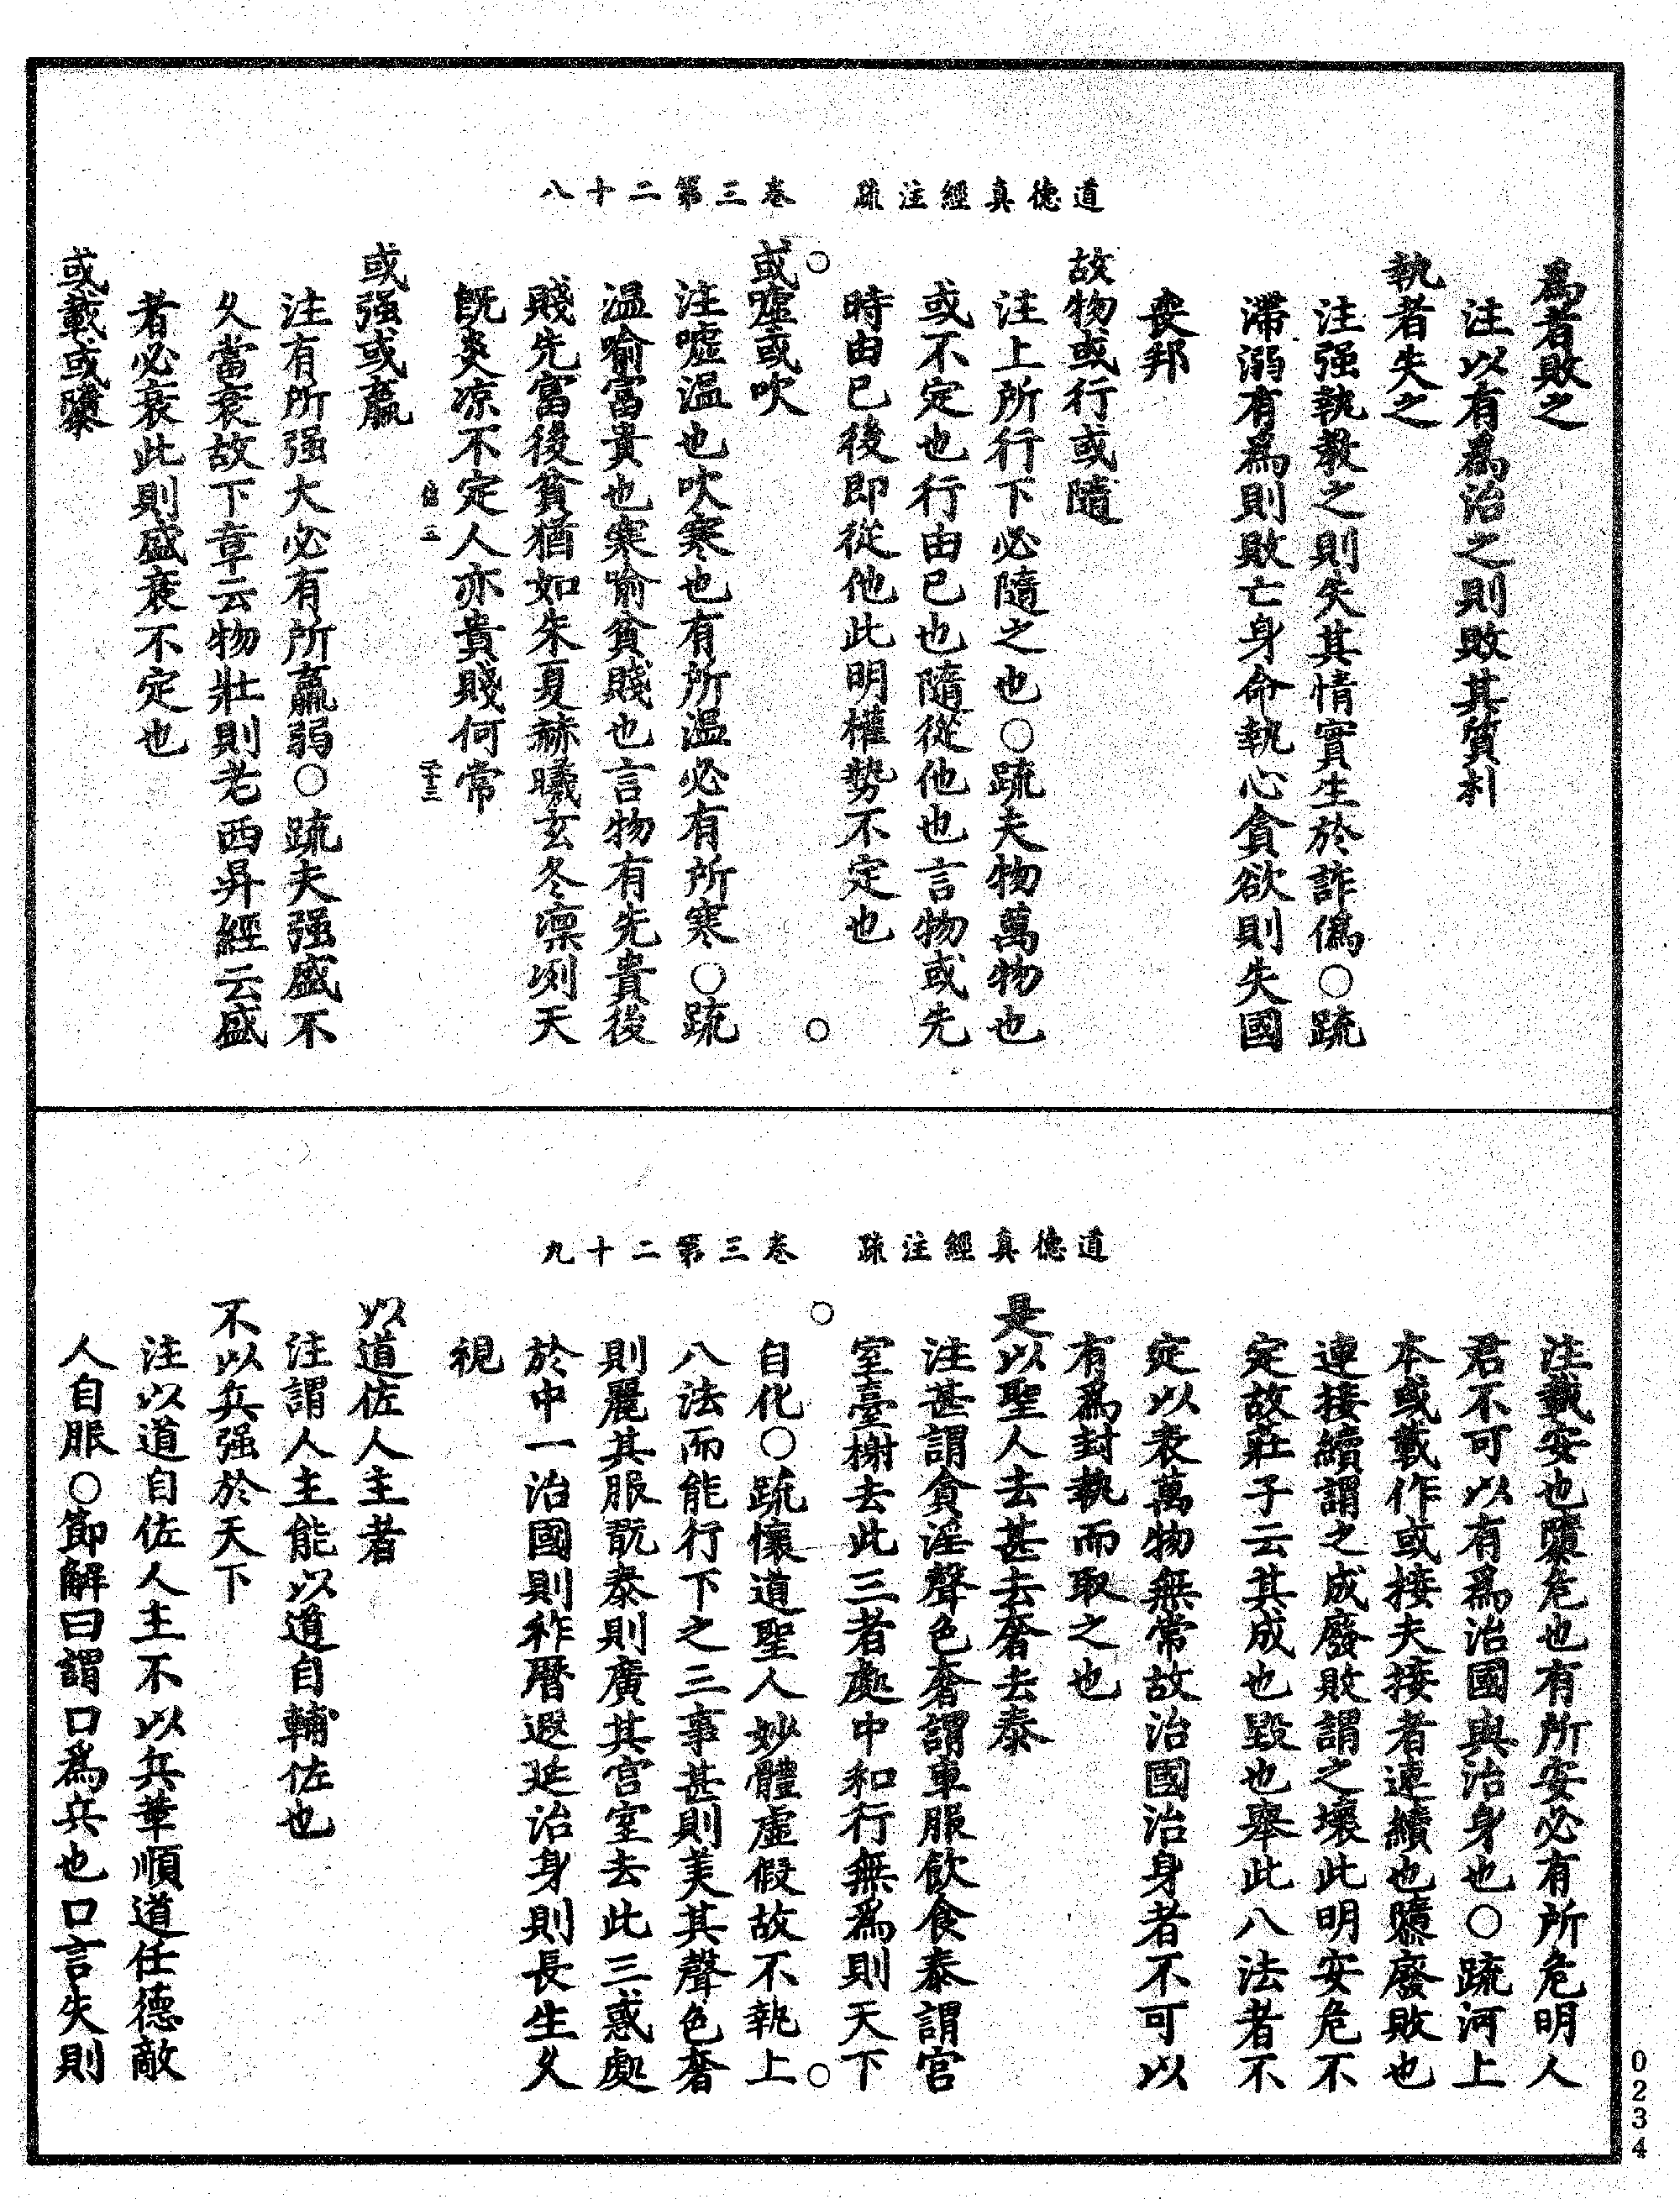 道德真經注疏　卷三第二十八
爲者敗之
注以有爲治之則敗其質朴
執者失之
注强執教之則失其情實生於詐僞○䟽
滯溺有爲則敗亡身命執心貪欲則失國
喪邦
故物或行或隨
注上所行下必隨之也○䟽夫物萬物也
或不定也行由已也隨從他也言物或先
時由已後即從他此明權勢不定也
或噓或吹
注噓温也吹寒也有所温必有所寒○䟽
温喻富貴也寒喻貧賤也言物有先貴後
賤先富後貧猶如朱夏赫曦玄冬凛冽天
旣炎凉不定人亦貴賤何常
或强或羸
注有所强大必有所羸弱○䟽夫强盛不
久當衰故下章云物壯則老西昇經云盛
者必衰此則盛衰不定也
或載或隳
道德真經注疏　卷三第二十九
注載安也隳危也有所安必有所危明人
君不可以有爲治國與治身也○䟽河上
本或載作或接夫接者連續也隳廢敗也
連接續謂之成廢敗謂之壞此明安危不
定故莊子云其成也毀也舉此八法者不
定以表萬物無常故治國治身者不可以
有爲封執而取之也
是以聖人去甚去奢去泰
注甚謂貪淫聲色奢謂車服飲食泰謂宫
室臺榭去此三者處中和行無爲則天下
自化○䟽懷道聖人妙體虛假故不執上
八法而能行下之三事甚則美其聲色奢
則麗其服翫泰則廣其宫室去此三惑處
於中一治國則祚曆遐延治身則長生久
視
以道佐人主者
注謂人主能以道自輔佐也
不以兵强於天下
注以道自佐人主不以兵革順道任德敵
人自服○節解曰謂口爲兵也口言失則
0234